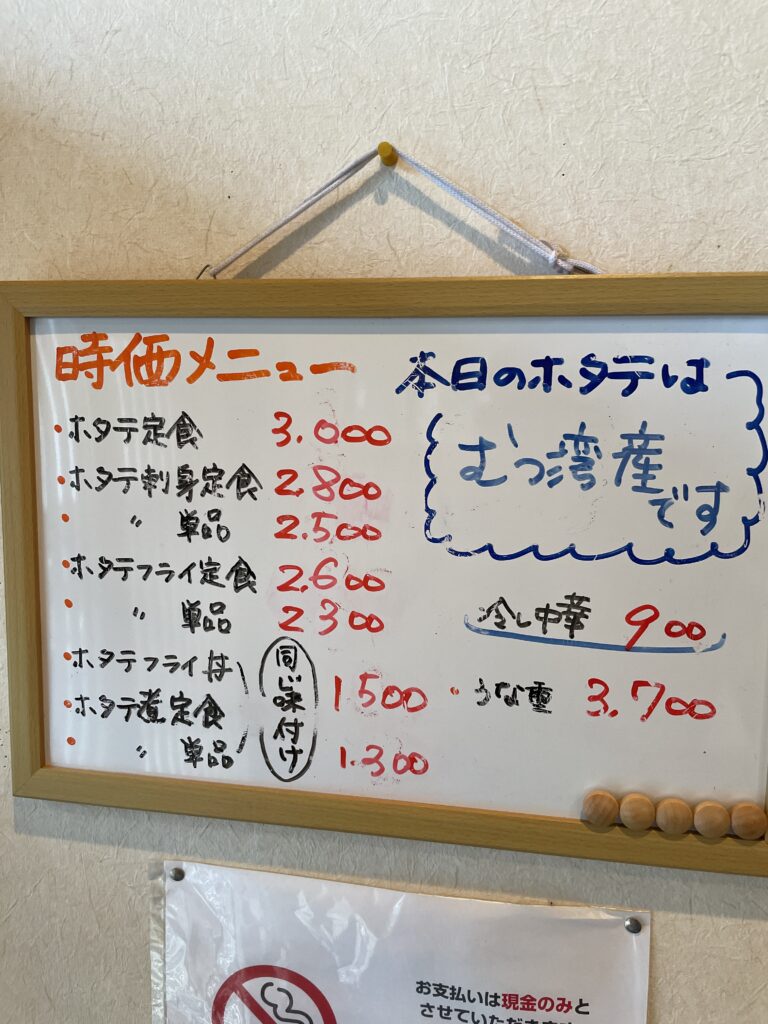 時価メニュー
・ホタテ定食 3.000
・ホタテ刺身定食 2.800
・ 〃 単品 2.500
・ホタテフライ定食 2.600
・ 〃 単品 2300
・ホタテフライ丼
・ホタテ煮定食 1500
・ 〃 単品 1.300
同じ味付け
本日のホタテは
むつ湾産
です
冷し中華 900
・うな重 3.700
お支払いは現金のみと